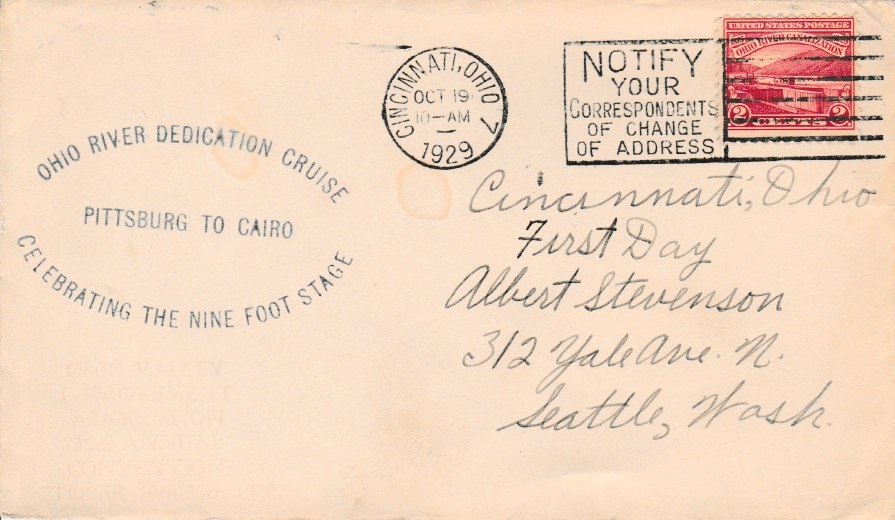 OHIO RIVER DEDICATION CRUISE
PITTSBURG TO CAIRO
CELEBRATING THE NINE FOOT STAGE
CINCINNATI, OHIO 7
OCT 19
10-AM
1929
NOTIFY
YOUR
CORRESPONDENTS
OF CHANGE
OF ADDRESS
UNITED STATES POSTAGE
OHIO RIVER CANALIZATION
2 2
Cincinnati, Ohio
First Day
Albert Stevenson
312 Yale Ave. N.
Seattle, Wash.